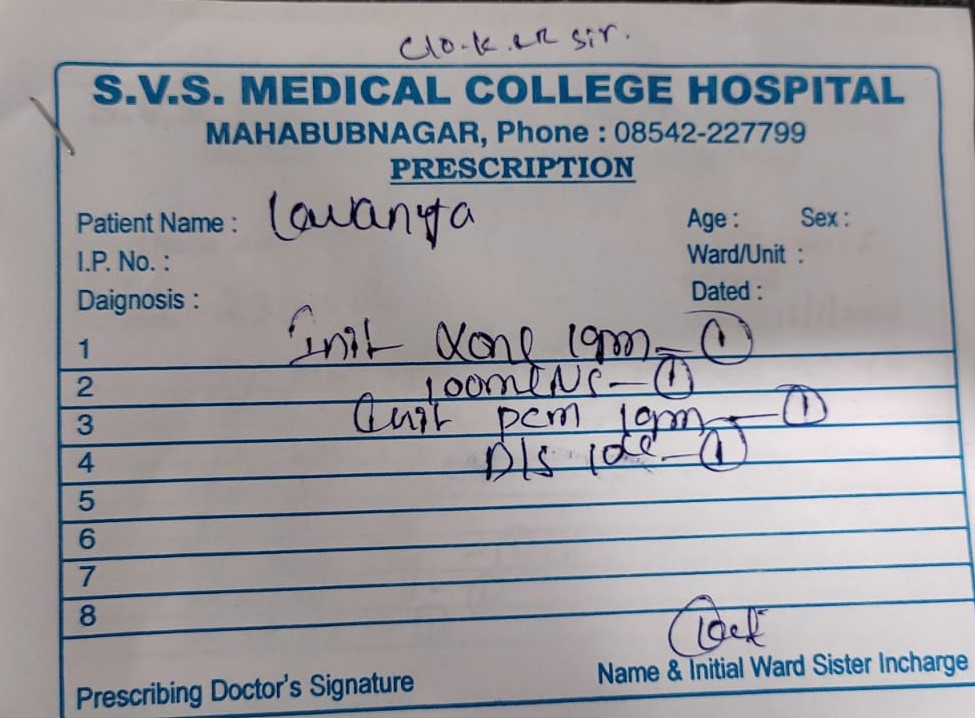 C/o. K. ER sir.
S.V.S. MEDICAL COLLEGE HOSPITAL
MAHABUBNAGAR, Phone : 08542-227799
PRESCRIPTION
Patient Name : Lavanya
Age : Sex :
I.P. No. :
Ward/Unit :
Daignosis :
Dated :
1 Init Xone 1gm - 1
2 100ml NS - 1
3 Init pcm 1gm - 1
4 D/s 10cc - 1
5
6
7
8
Prescribing Doctor's Signature
Name & Initial Ward Sister Incharge